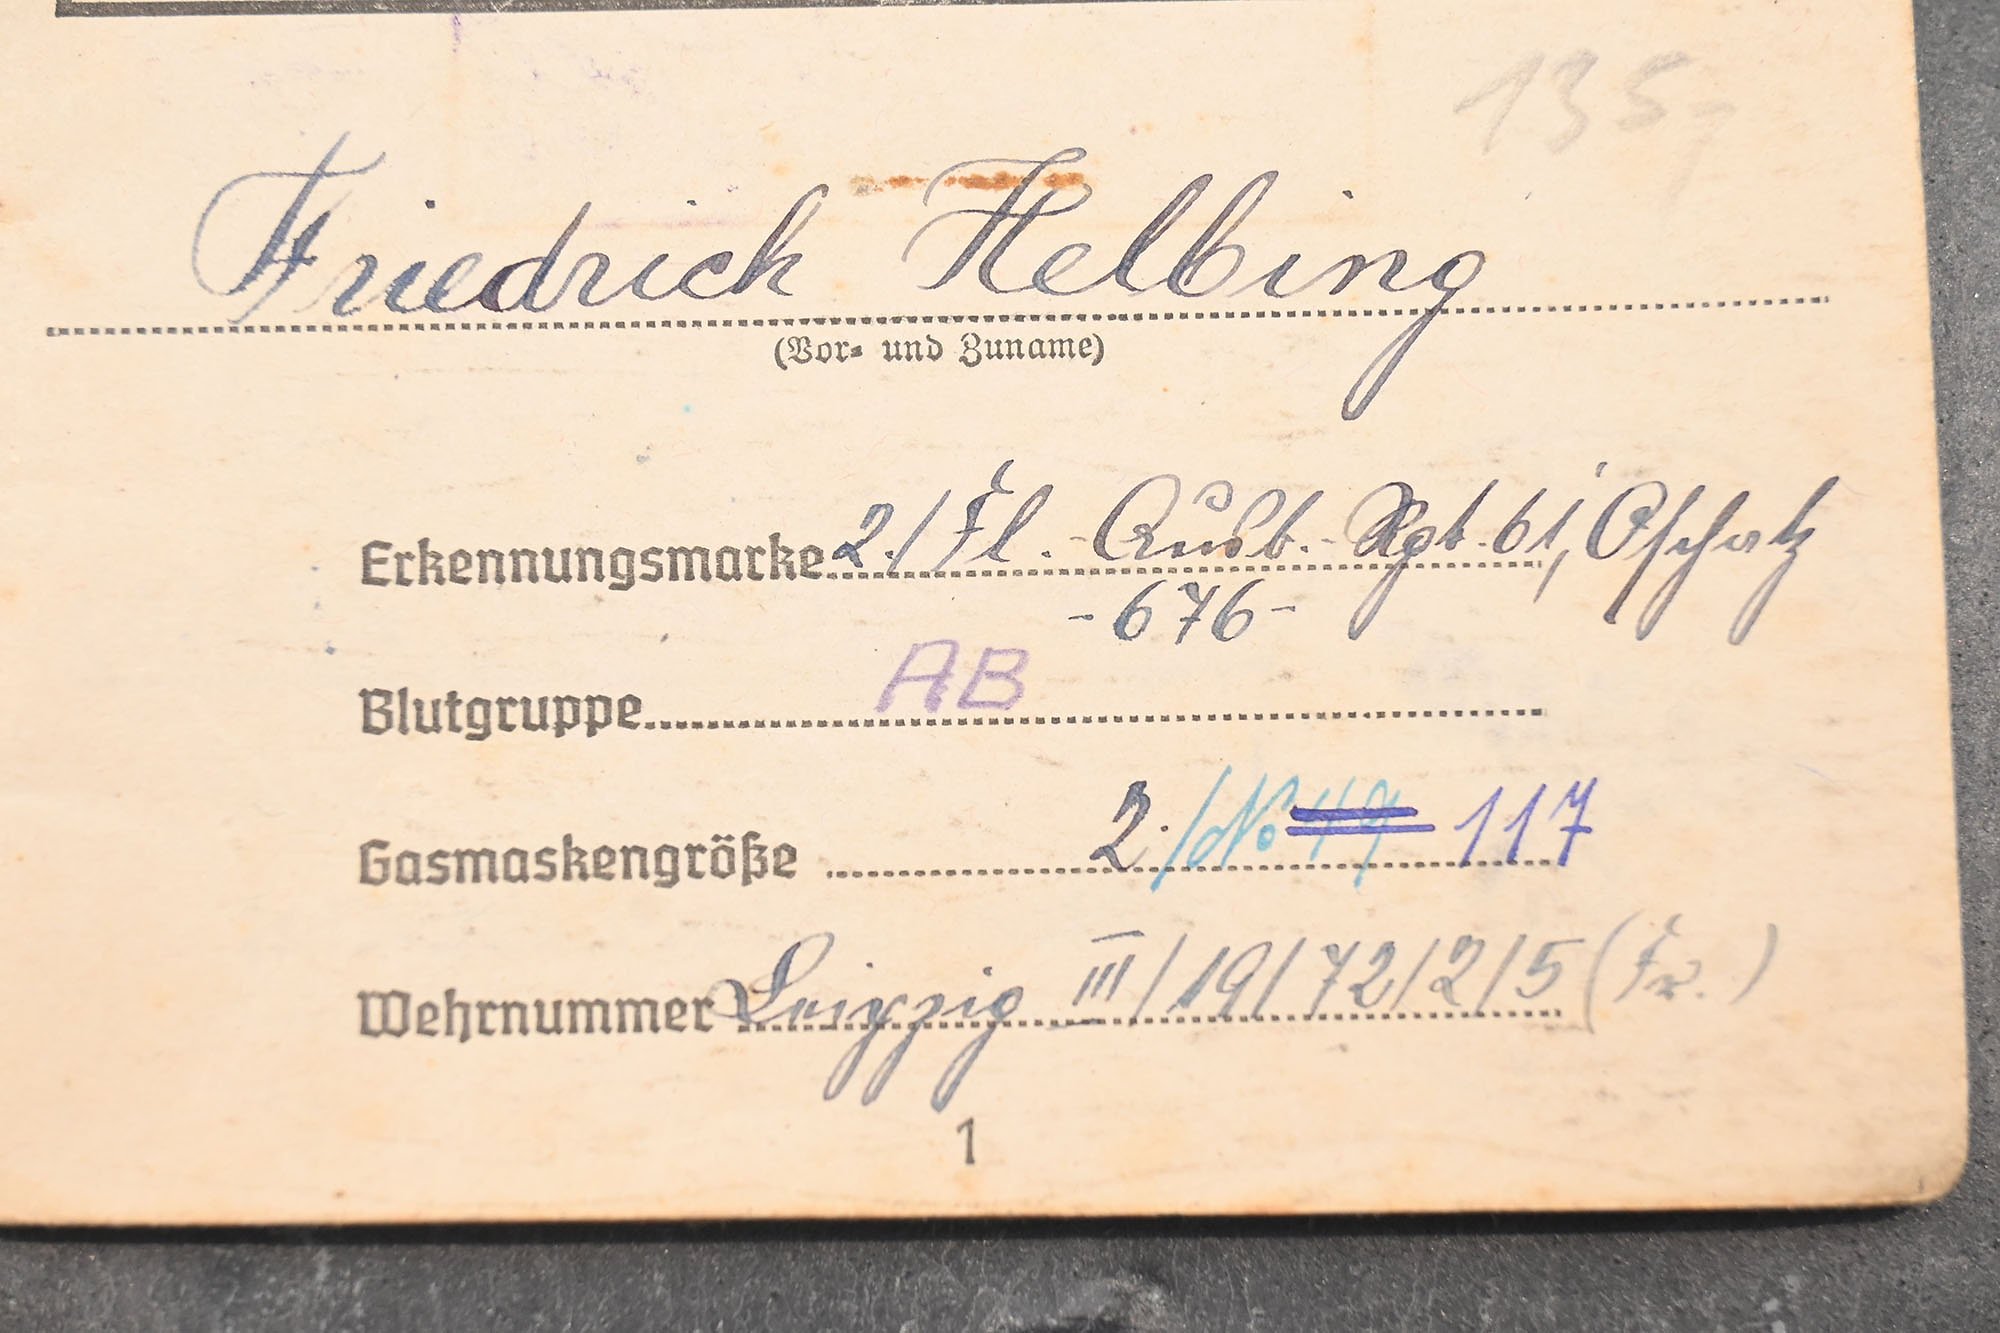 135,-
Friedrich Helbing
(Vor- und Zuname)
Erkennungsmarke 2./Fl.-Ausb.-Rgt. 61, Oschatz
-676-
Blutgruppe AB
Gasmaskengröße 2. / No 117
Wehrnummer Leipzig III/19/72/2/5 (Fr.)
1